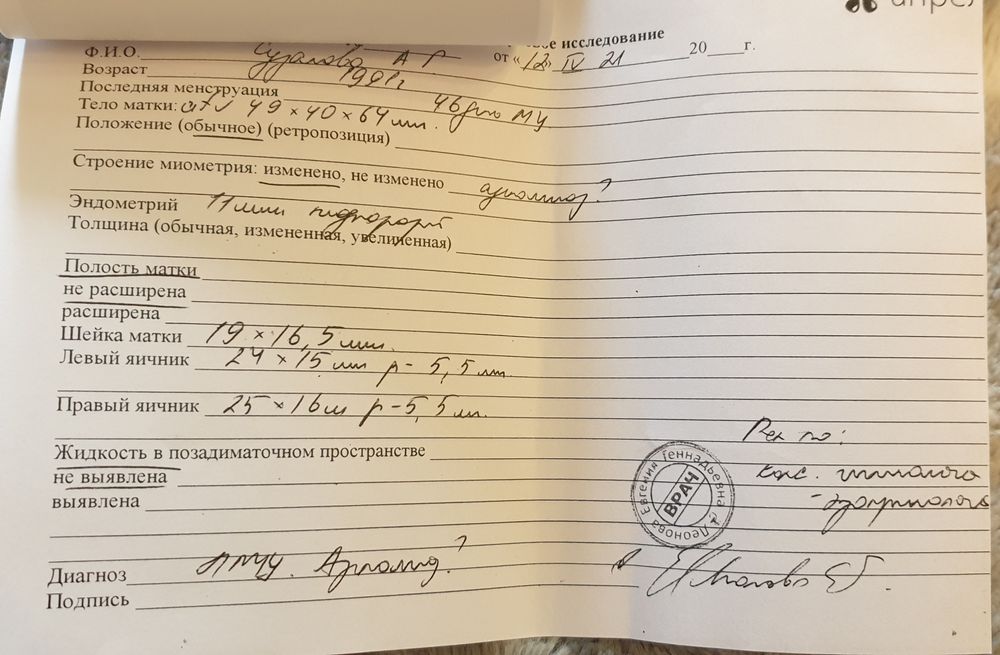 апрел
вое исследование
Ф.И.О. А Г от «12» IV 21 20 г.
Возраст 1991г
Последняя менструация 46 дню МЦ
Тело матки: 49 × 40 × 64 мм.
Положение (обычное) (ретропозиция)
Строение миометрия: изменено, не изменено аденомиоз?
Эндометрий 11 мм
Толщина (обычная, измененная, увеличенная)
Полость матки
не расширена
расширена
Шейка матки 19 × 16,5 мм.
Левый яичник 24 × 15 мм р- 5,5 мм
Правый яичник 25 × 16 м р-5,5 мм.
Жидкость в позадиматочном пространстве
не выявлена
выявлена
Рек-но:
конс. гинеколога
-эндокринолога
Леонова Евгения Геннадьевна
ВРАЧ
Диагноз НМЦ. Аденомиоз?
Подпись